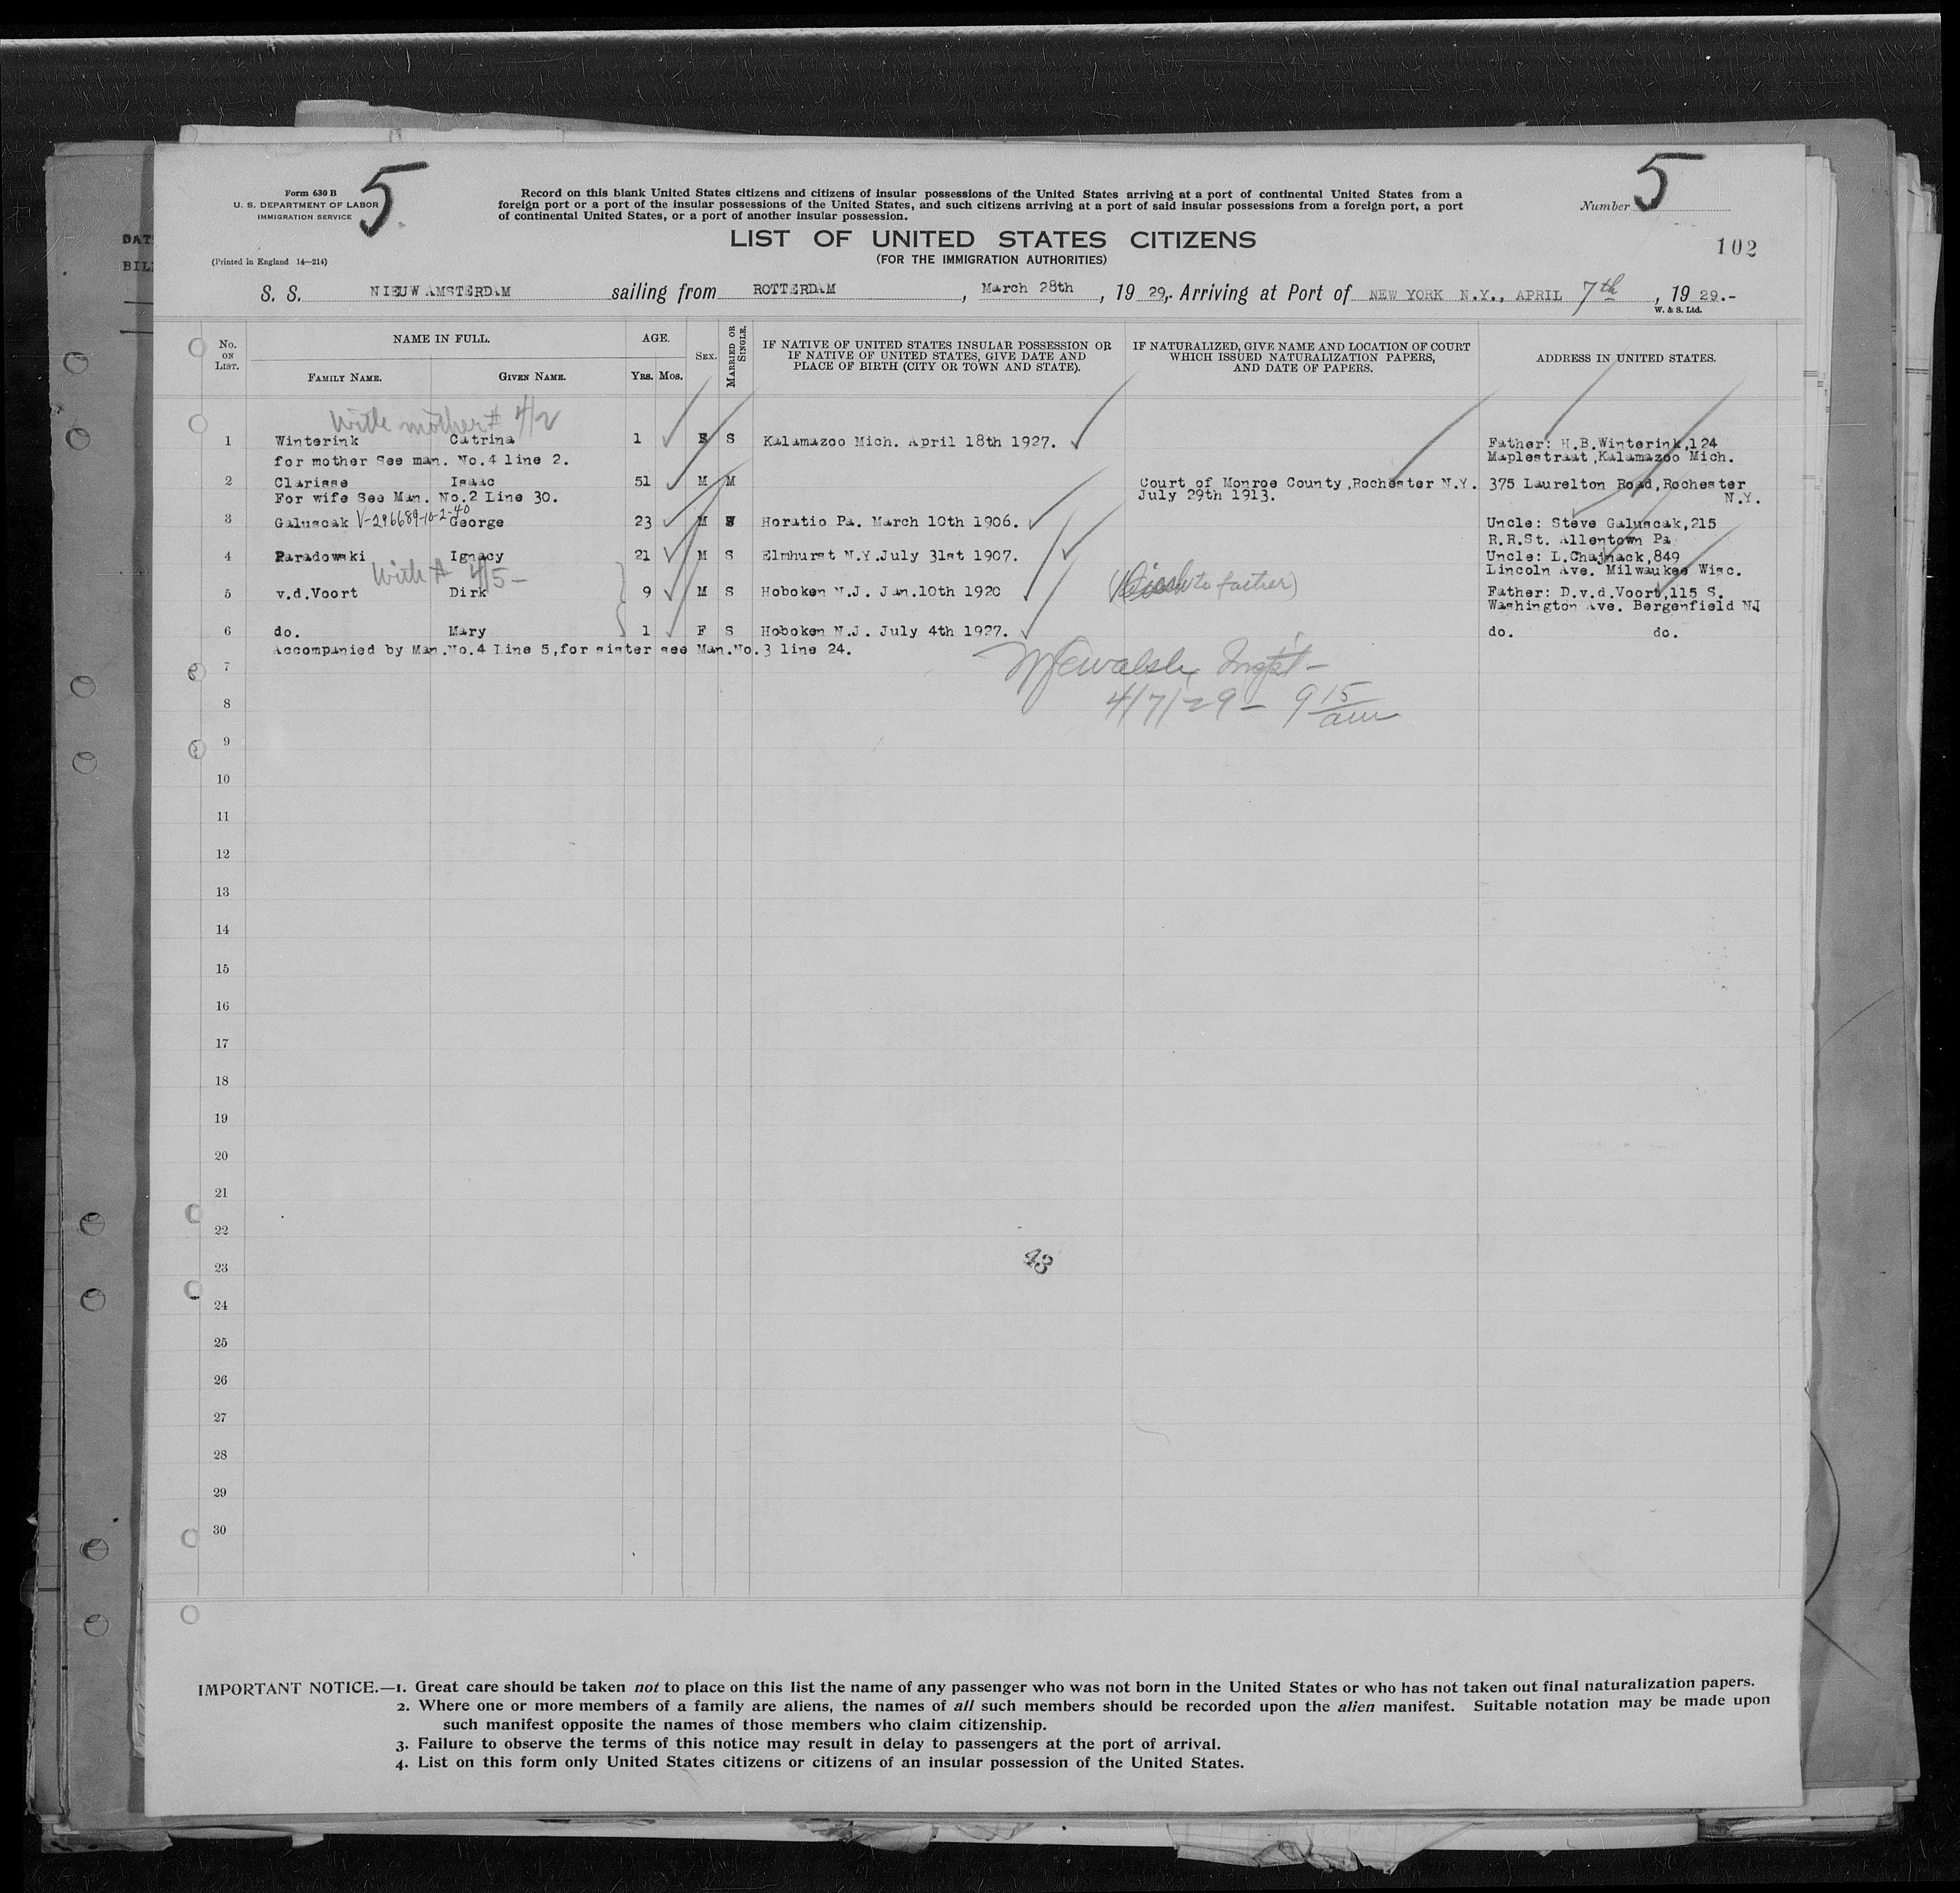 DAT
BIL
Form 630 B
U. S. DEPARTMENT OF LABOR
IMMIGRATION SERVICE
5
(Printed in England 14—214)
Record on this blank United States citizens and citizens of insular possessions of the United States arriving at a port of continental United States from a
foreign port or a port of the insular possessions of the United States, and such citizens arriving at a port of said insular possessions from a foreign port, a port
of continental United States, or a port of another insular possession.
Number 5
102
LIST OF UNITED STATES CITIZENS
(FOR THE IMMIGRATION AUTHORITIES)
S. S. NIEUW AMSTERDAM sailing from ROTTERDAM, March 28th, 19 29,. Arriving at Port of NEW YORK N.Y., APRIL 7th, 19 29.-
W. & S. Ltd.
No. ON LIST. NAME IN FULL. FAMILY NAME. GIVEN NAME. AGE. YRS. MOS. SEX. MARRIED OR SINGLE.
IF NATIVE OF UNITED STATES INSULAR POSSESSION OR
IF NATIVE OF UNITED STATES, GIVE DATE AND
PLACE OF BIRTH (CITY OR TOWN AND STATE).
IF NATURALIZED, GIVE NAME AND LOCATION OF COURT
WHICH ISSUED NATURALIZATION PAPERS,
AND DATE OF PAPERS.
ADDRESS IN UNITED STATES.
with mother # 4/2
1 Winterink Catrina 1 F S Kalamazoo Mich. April 18th 1927. Father: H.B.Winterink,124
for mother See man. No.4 line 2. Maplestraat,Kalamazoo Mich.
2 Clarisse Isaac 51 M M Court of Monroe County,Rochester N.Y. 375 Laurelton Road,Rochester
For wife See Man. No.2 Line 30. July 29th 1913. N.Y.
V-296689-10-2-40
3 Galuscak George 23 M Horatio Pa. March 10th 1906. Uncle: Steve Galuscak,215
R.R.St. Allentown Pa
4 Paradowski Ignacy 21 M S Elmhurst N.Y.July 31st 1907. Uncle: L.Chajnack,849
Lincoln Ave. Milwaukee Wisc.
With # 4/5-
5 v.d.Voort Dirk 9 M S Hoboken N.J. Jan.10th 1920 to father) Father: D.v.d.Voort,115 S.
Washington Ave. Bergenfield NJ
6 do. Mary 1 F S Hoboken N.J. July 4th 1927. do. do.
Accompanied by Man.No.4 Line 5,for sister see Man.No.3 line 24.
7
Walsh, Inspt-
8
4/7/29- 9 15 am
9
10
11
12
13
14
15
16
17
18
19
20
21
22
23
43
24
25
26
27
28
29
30
IMPORTANT NOTICE.—1. Great care should be taken not to place on this list the name of any passenger who was not born in the United States or who has not taken out final naturalization papers.
2. Where one or more members of a family are aliens, the names of all such members should be recorded upon the alien manifest. Suitable notation may be made upon
such manifest opposite the names of those members who claim citizenship.
3. Failure to observe the terms of this notice may result in delay to passengers at the port of arrival.
4. List on this form only United States citizens or citizens of an insular possession of the United States.